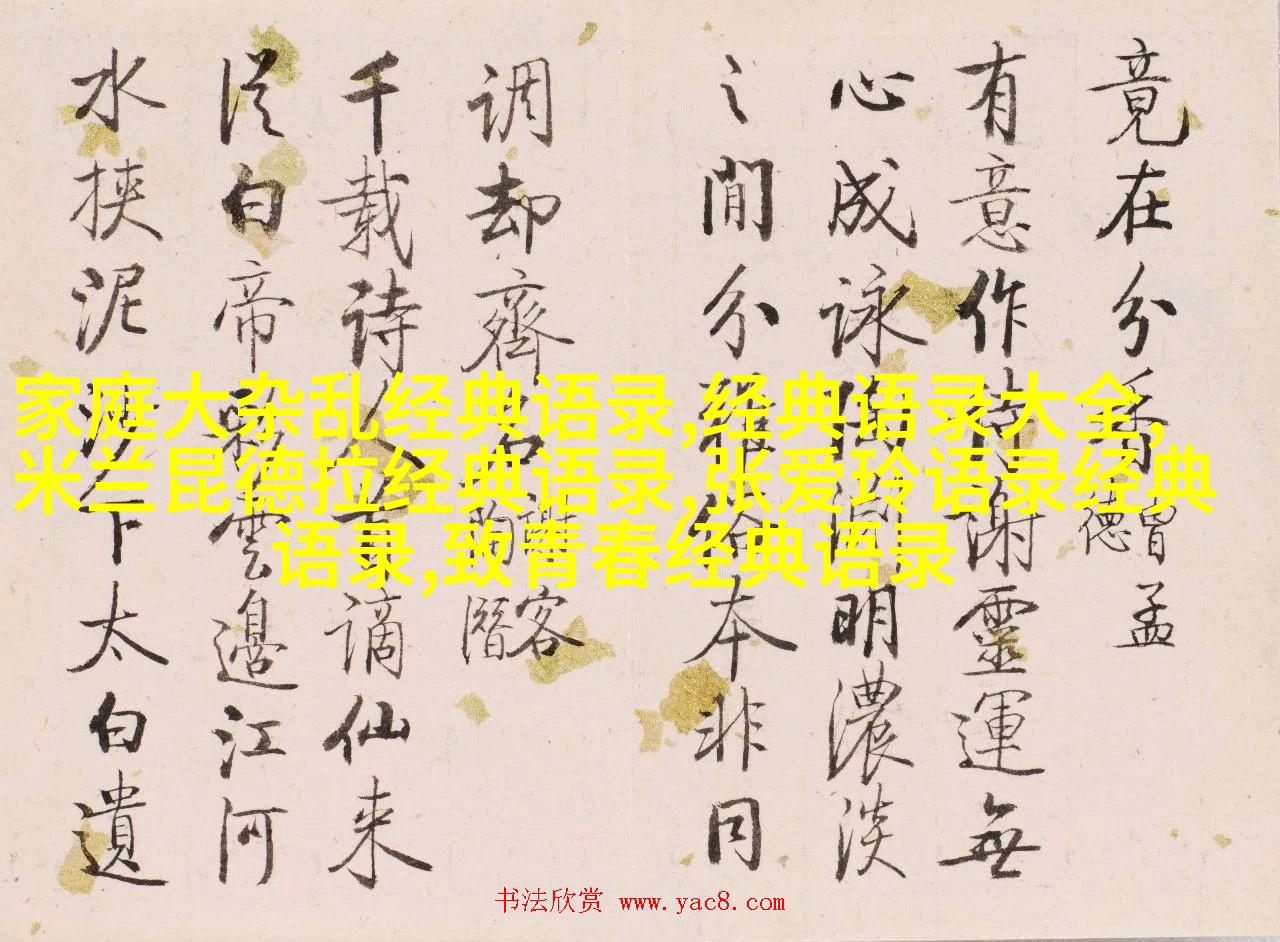 竟在分香曹孟
德
有意作詩謝靈運無
心成詠陶淵明濃淡
之間分雅俗本非同
調却齊名謝客
陶潛
千載詩人謫仙来
從白帝彩雲邊江河
水挾泥沙下太白遺
家庭大杂乱经典语录,经典语录大全,
米兰昆德拉经典语录,张爱玲语录经典
语录,致青春经典语录
书法欣赏 www.yac8.com